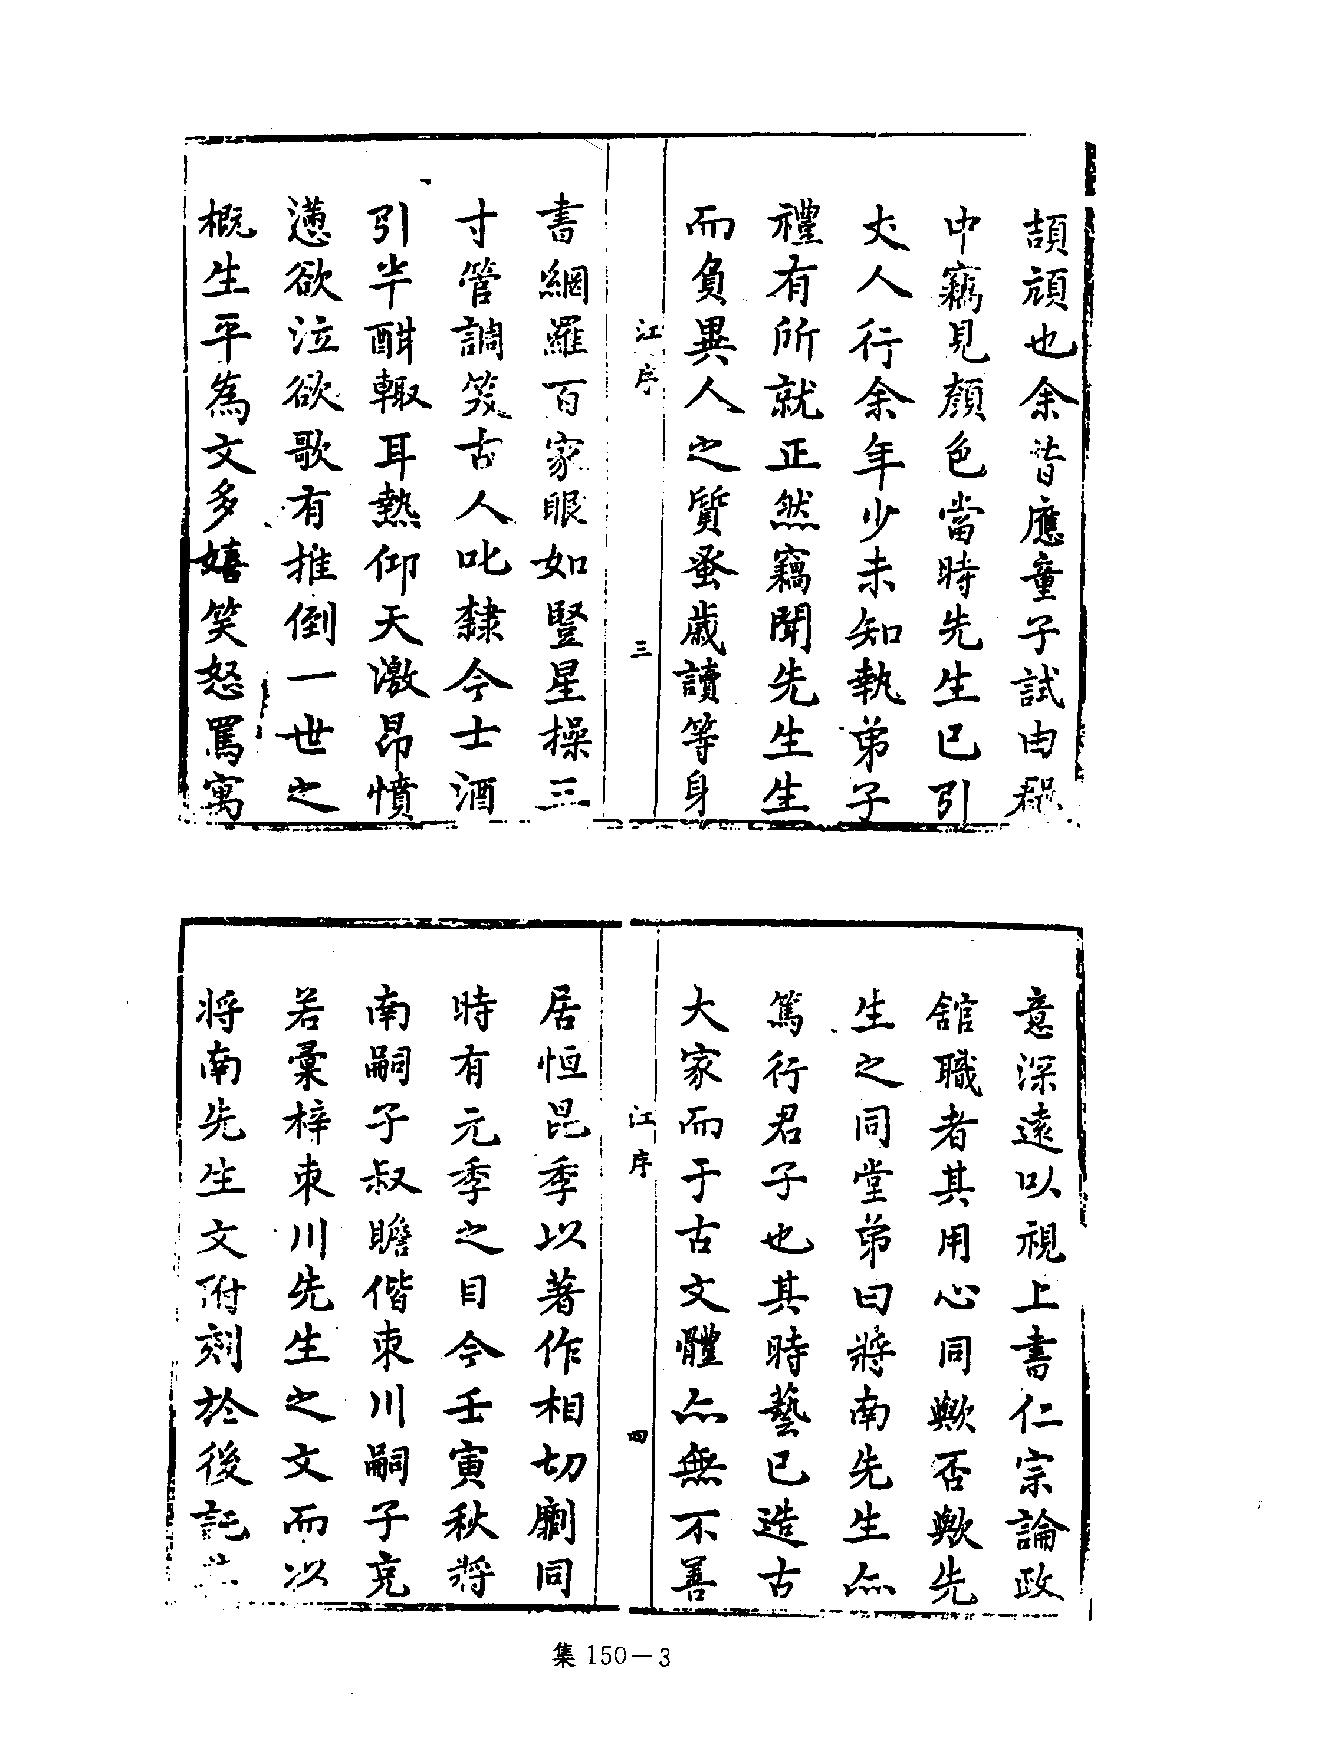 頡頏也余昔應童子試由郡
中竊見顏色當時先生已引
丈人行余年少未知執弟子
禮有所就正然竊聞先生生
而負異人之質蚤歲讀等身
江序
三
書網羅百家眼如豎星操三
寸管調笑古人叱隸今士酒
引半酣輒耳熱仰天激昂憤
懣欲泣欲歌有推倒一世之
概生平為文多嬉笑怒罵寓
意深遠以視上書仁宗論政
舘職者其用心同歟否歟先
生之同堂弟曰將南先生亦
篤行君子也其時藝已造古
大家而于古文體亦無不善
江序
四
居恒昆季以著作相切劘同
時有元季之目今壬寅秋將
南嗣子叔瞻偕東川嗣子亮
若彙梓東川先生之文而以
將南先生文附剡於後託
集 150－3